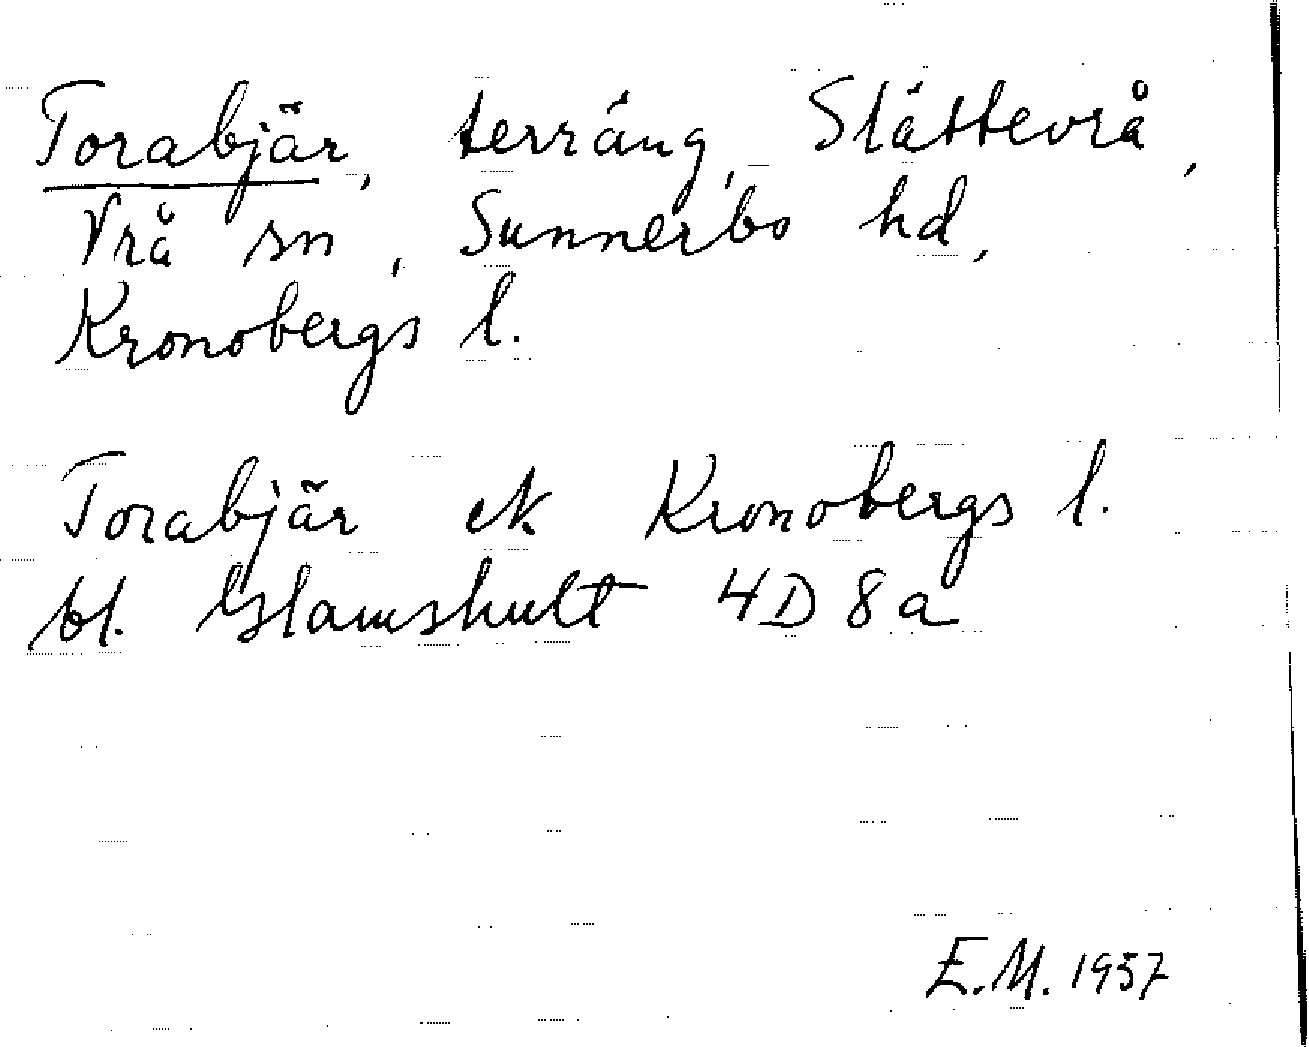 Torabjär, terräng, Slättevrå,
Vrå sn, Sunnerbo hd,
Kronobergs l.
Torabjär ek Kronobergs l.
bl. Glamshult 4D8a
E.M. 1957